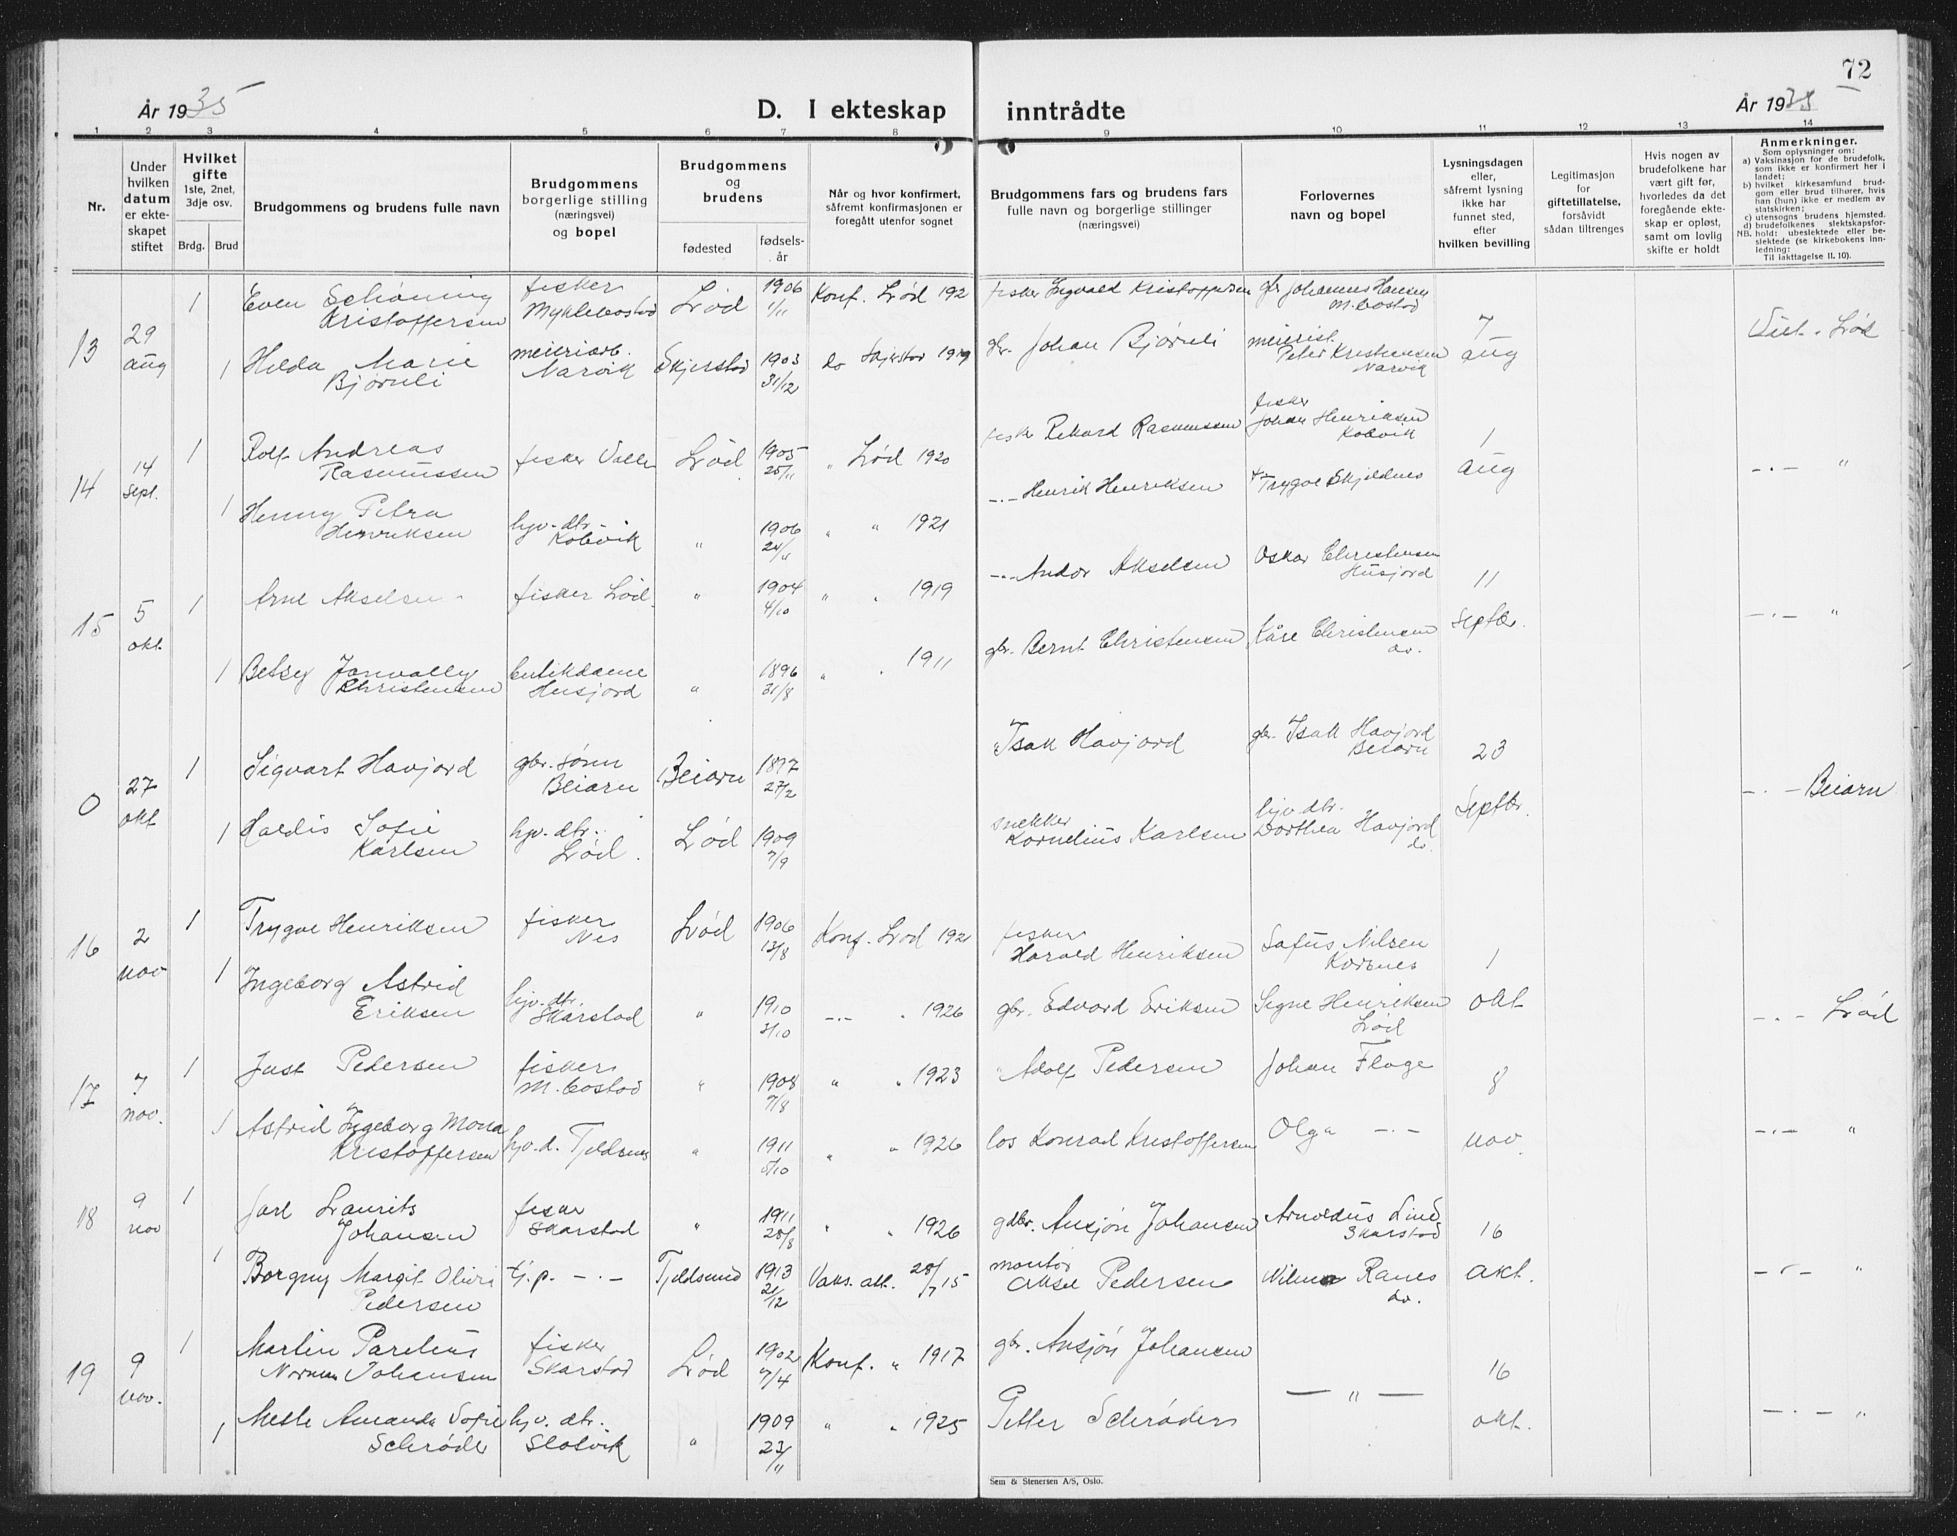 72
År 1935
D. I ekteskap inntrådte
År 1935
1 2 3 4 5 6 7 8 9 10 11 12 13 14
Nr.
Under hvilken datum er ekteskapet stiftet
Hvilket gifte
1ste, 2net, 3dje osv.
Brdg. Brud
Brudgommens og brudens fulle navn
Brudgommens borgerlige stilling (næringsvei) og bopel
Brudgommens og brudens
fødested
fødsels-år
Når og hvor konfirmert, såfremt konfirmasjonen er foregått utenfor sognet
Brudgommens fars og brudens fars fulle navn og borgerlige stillinger (næringsvei)
Forlovernes navn og bopel
Lysningsdagen eller, såfremt lysning ikke har funnet sted, efter hvilken bevilling
Legitimasjon for giftetillatelse, forsåvidt sådan tiltrenges
Hvis nogen av brudefolkene har vært gift før, hvorledes da det foregående ekteskap er opløst, samt om lovlig skifte er holdt
Anmerkninger.
Som oplysninger om:
a) Vaksinasjon for de brudefolk, som ikke er konfirmert her i landet;
b) hvilket kirkesamfund brudgom eller brud tilhører, hvis han (hun) ikke er medlem av statskirken;
c) utensogns brudens hjemsted.
d) brudefolkenes slektskapsforhold: ubeslektede eller beslektede (se kirkebokens innledning:
NB.
Til iakttagelse II. 10).
13 29 aug 1 Even Schöning Kristoffersen fisker Myklebostad Lød 1906 1/11 Konf. Lød 192 fisker Sigvald Kristoffersen gbr Johannes Hansen M.bostad 7 aug
1 Hilda Marie Bjørnli meieriarb. Narvik Skjerstad 1903 31/12 do Skjerstad 1919 gbr. Johan Bjørnli meierist. Peter Kristensen Narvik
14 14 sept. 1 Rolf Andreas Rasmussen fisker Valle Lød 1905 25/11 " Lød 1920 fisker Rikard Rasmussen fisker Johan Henriksen Kobvik 1 aug -"- "
1 Henny Petra Henriksen hjv. dtr. Kobvik " 1906 24/11 " " 1921 -"- Henrik Henriksen Trygve Skjeldnes
15 5 okt. 1 Arne Akselsen fisker Lød " 1904 4/10 " " 1919 -"- Andor Akselsen Oskar Christensen Husjord 11 septbr. -"- "
1 Betsy Christensen butikdame Husjord " 1896 31/8 " " 1911 gbr. Bernt Christensen Kåre Christensen do.
0 27 okt 1 Sigvart Havjord gbr. sønn Beiarn Beiarn 1897 27/2 " Isak Havjord gbr. Isak Havjord Beiarn 23 septbr. -"- Beiarn
1 Haldis Sofie Karlsen hjv. dtr. Lød Lød 1909 7/9 snekker Kornelius Karlsen hjv. dtr. Dorthea Havjord do.
16 2 nov 1 Trygve Henriksen fisker Nes Lød 1906 13/8 Konf. Lød 192 fisker Harald Henriksen Sofus Nilsen Korsnes 1 okt
1 Ingeborg Astrid Eriksen hjv. dtr. Skarstad " 1910 3/10 -"- " 1926 gbr. Edvard Eriksen Signe Henriksen Lød -"- Lød
17 7 nov. 1 Just Pedersen fisker M.bostad " 1908 7/8 " " 1923 " Adolf Pedersen Johan Floge 8 nov
1 Astrid Ingeborg Mona Kristoffersen hjv. d. Tjeldnes " 1911 5/10 " " 1926 los Konrad Kristoffersen Olga -"- -"- "
18 9 nov 1 Jarl Laurits Johansen fisker Skarstad " 1911 28/8 " " 1926 gdbr. Ansjøn Johansen Arnoldus Lind Skarstad 16 okt.
1 Borgny Margit Olivie Pedersen tj. p. -"- Tjeldsund 1913 21/12 Vaks. att. 28/7 15 montør Aksel Pedersen Wilma Ranes do. -"- "
19 9 nov. 1 Martin Parelius Norman Johansen fisker Skarstad Lød 1902 7/4 Konf. " 1917 gbr. Ansjøn Johansen -"- 16 okt.
1 Mette Amanda Sofie Schrøder hjv. dtr. Slotvik " 1909 23/11 " " 1925 Petter Schrøder -"- "
Sem & Stenersen A/S, Oslo.